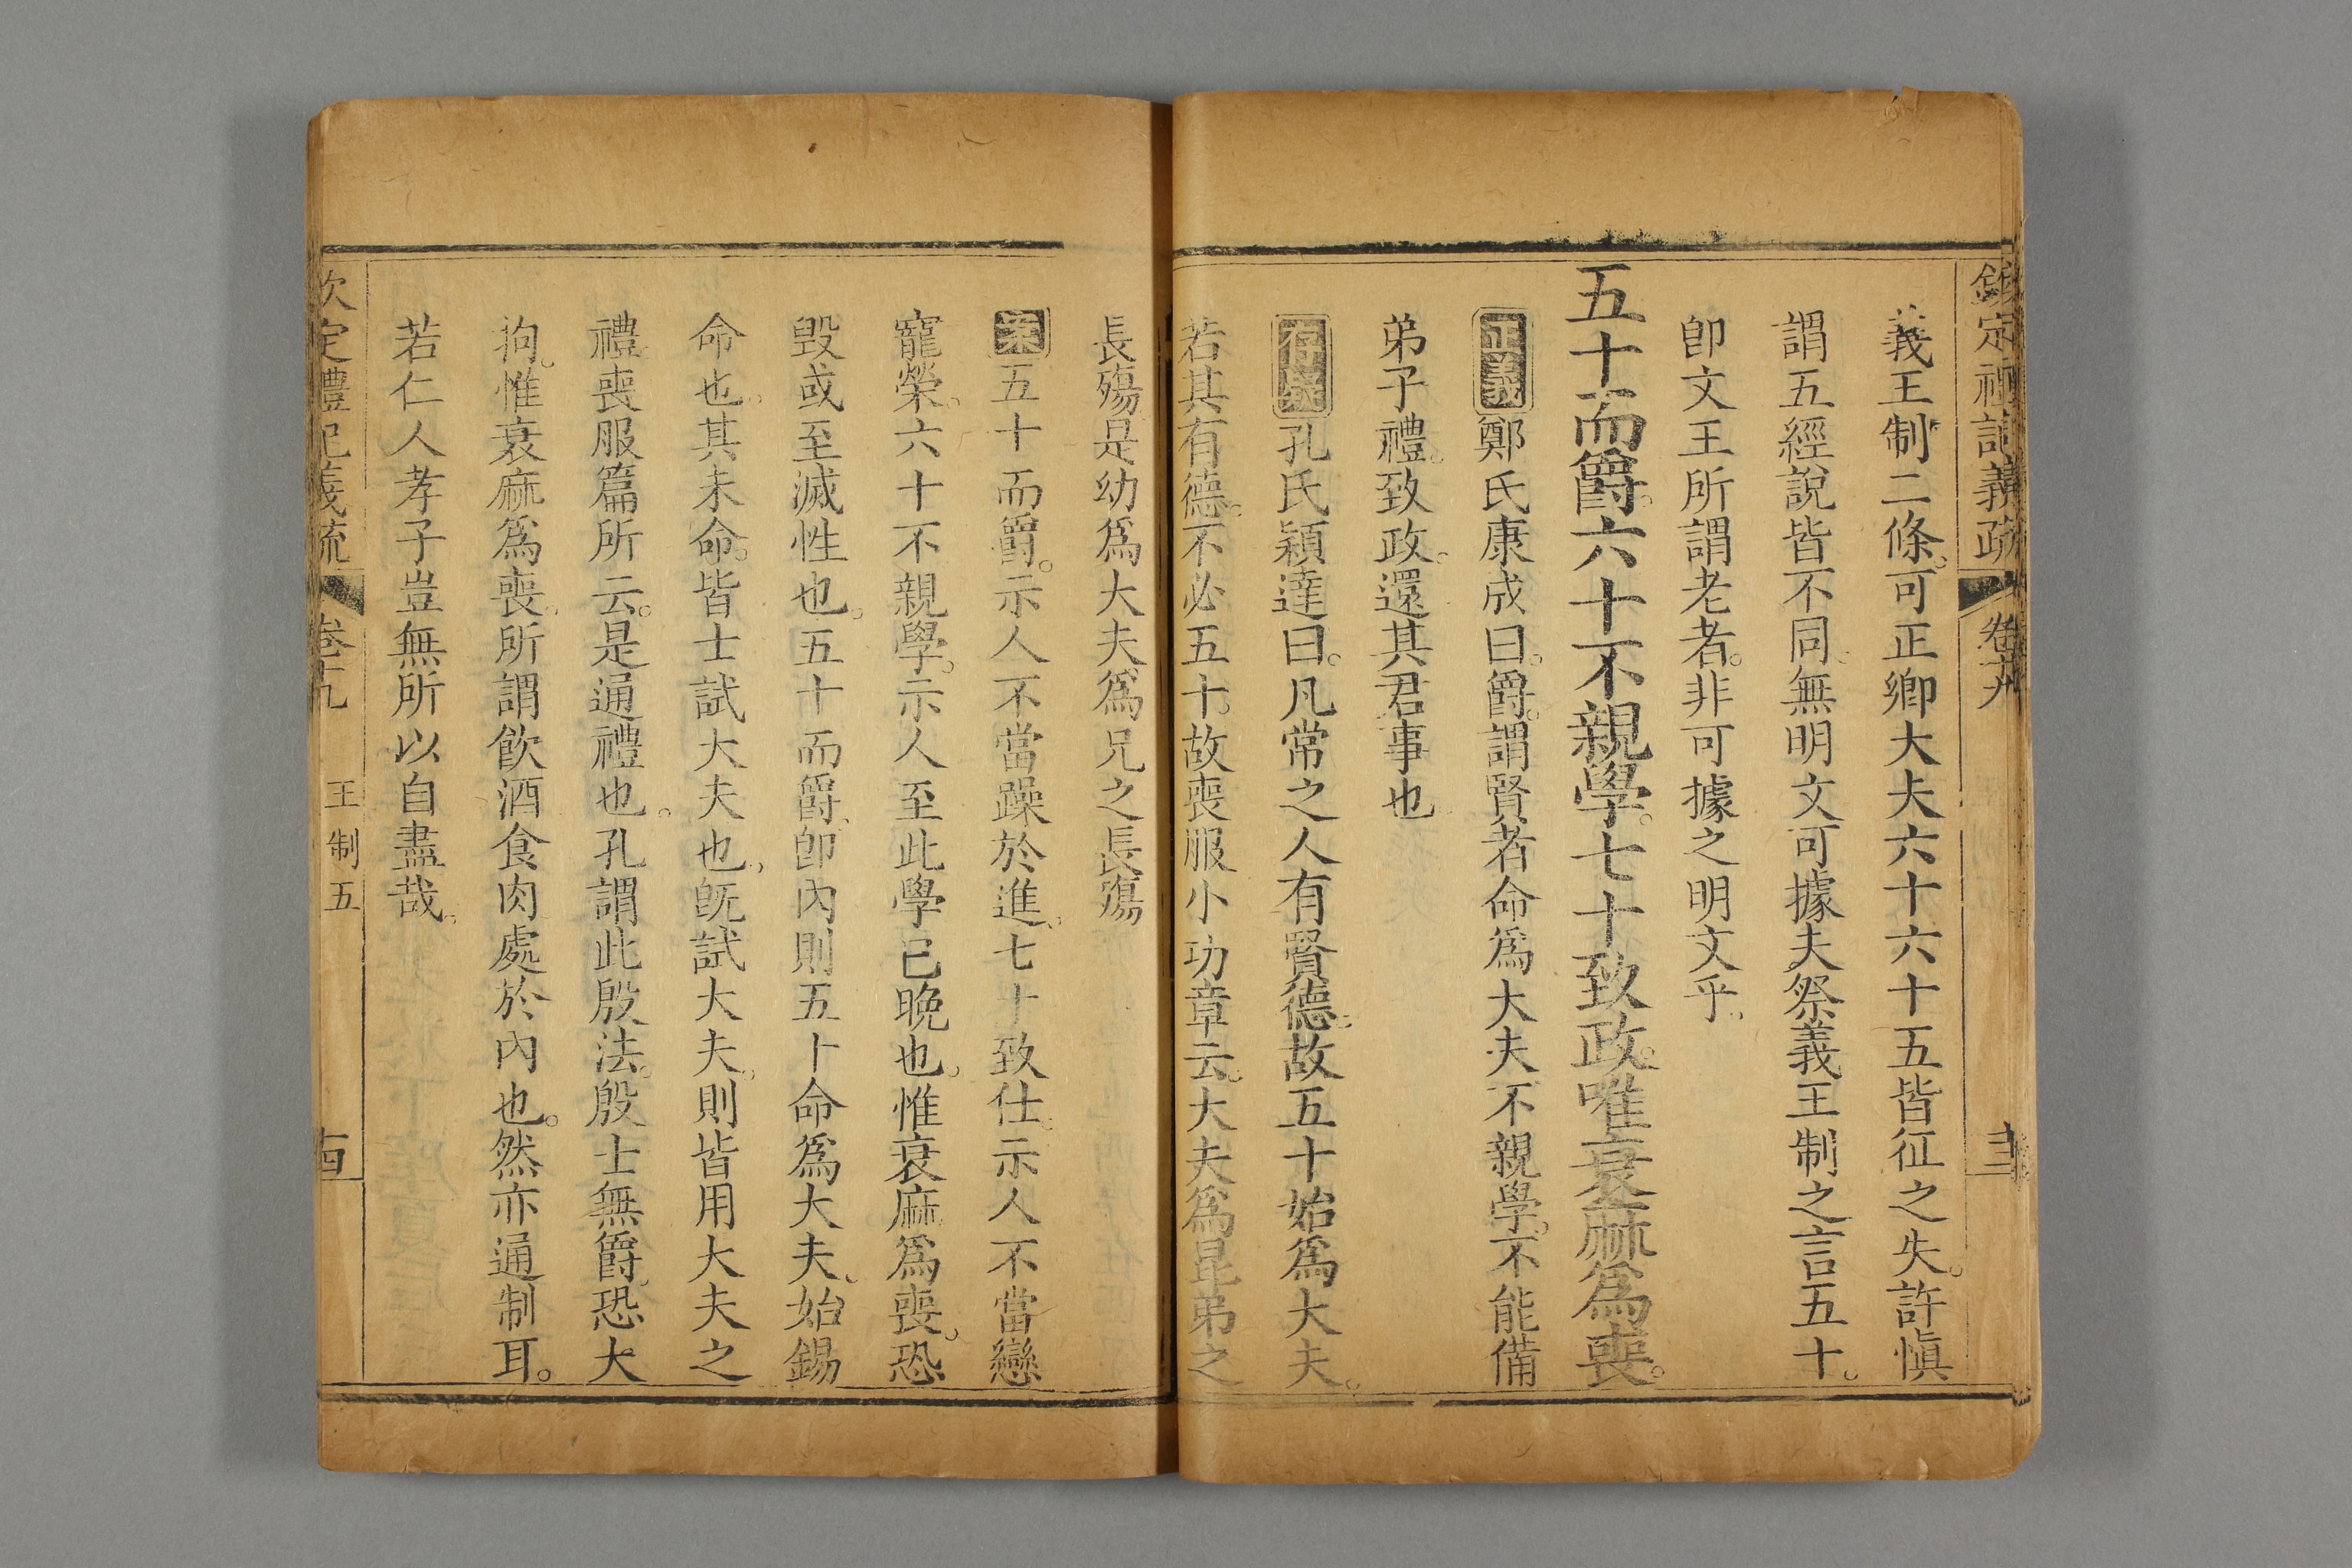 欽定禮記義疏 卷十九 十三
義王制二條。可正鄉大夫六十六十五皆征之失。許愼
謂五經說皆不同。無明文可據。夫祭義王制之言五十。
卽文王所謂老者。非可據之明文乎。
五十而爵。六十不親學。七十致政。唯衰麻爲喪。
正義鄭氏康成曰。爵。謂賢者命爲大夫不親學。不能備
弟子禮。致政。還其君事也
存疑孔氏穎達曰。凡常之人有賢德。故五十始爲大夫。
若其有德。不必五十。故喪服小功章云。大夫爲昆弟之
長殤是幼爲大夫爲兄之長殤
案五十而爵。示人不當躁於進。七十致仕。示人不當戀
寵榮。六十不親學。示人至此學已晚也。惟衰麻爲喪。恐
毀或至滅性也。五十而爵。卽內則五十命爲大夫。始錫
命也。其未命。皆士試大夫也。旣試大夫。則皆用大夫之
禮喪服篇所云。是通禮也。孔謂此殷法。殷士無爵。恐大
拘。惟衰麻爲喪。所謂飮酒食肉處於內也。然亦通制耳。
若仁人孝子豈無所以自盡哉。
欽定禮記義疏 卷十九 王制五 十四